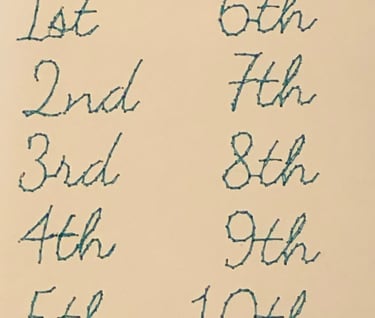 1st 6th
2nd 7th
3rd 8th
4th 9th
5th 10th